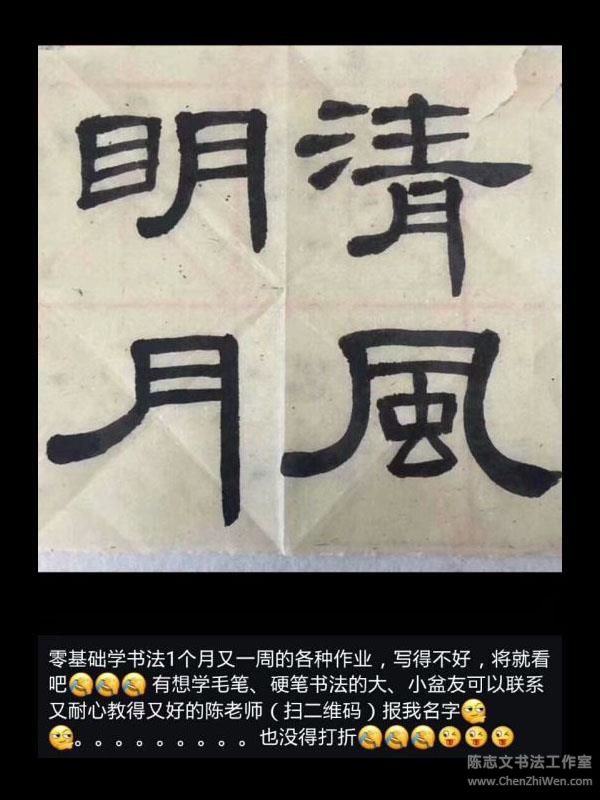 清風
眀月
零基础学书法1个月又一周的各种作业，写得不好，将就看
吧 有想学毛笔、硬笔书法的大、小盆友可以联系
又耐心教得又好的陈老师（扫二维码）报我名字
。。。。。。。。。也没得打折
陈志文书法工作室
www.ChenZhiWen.com